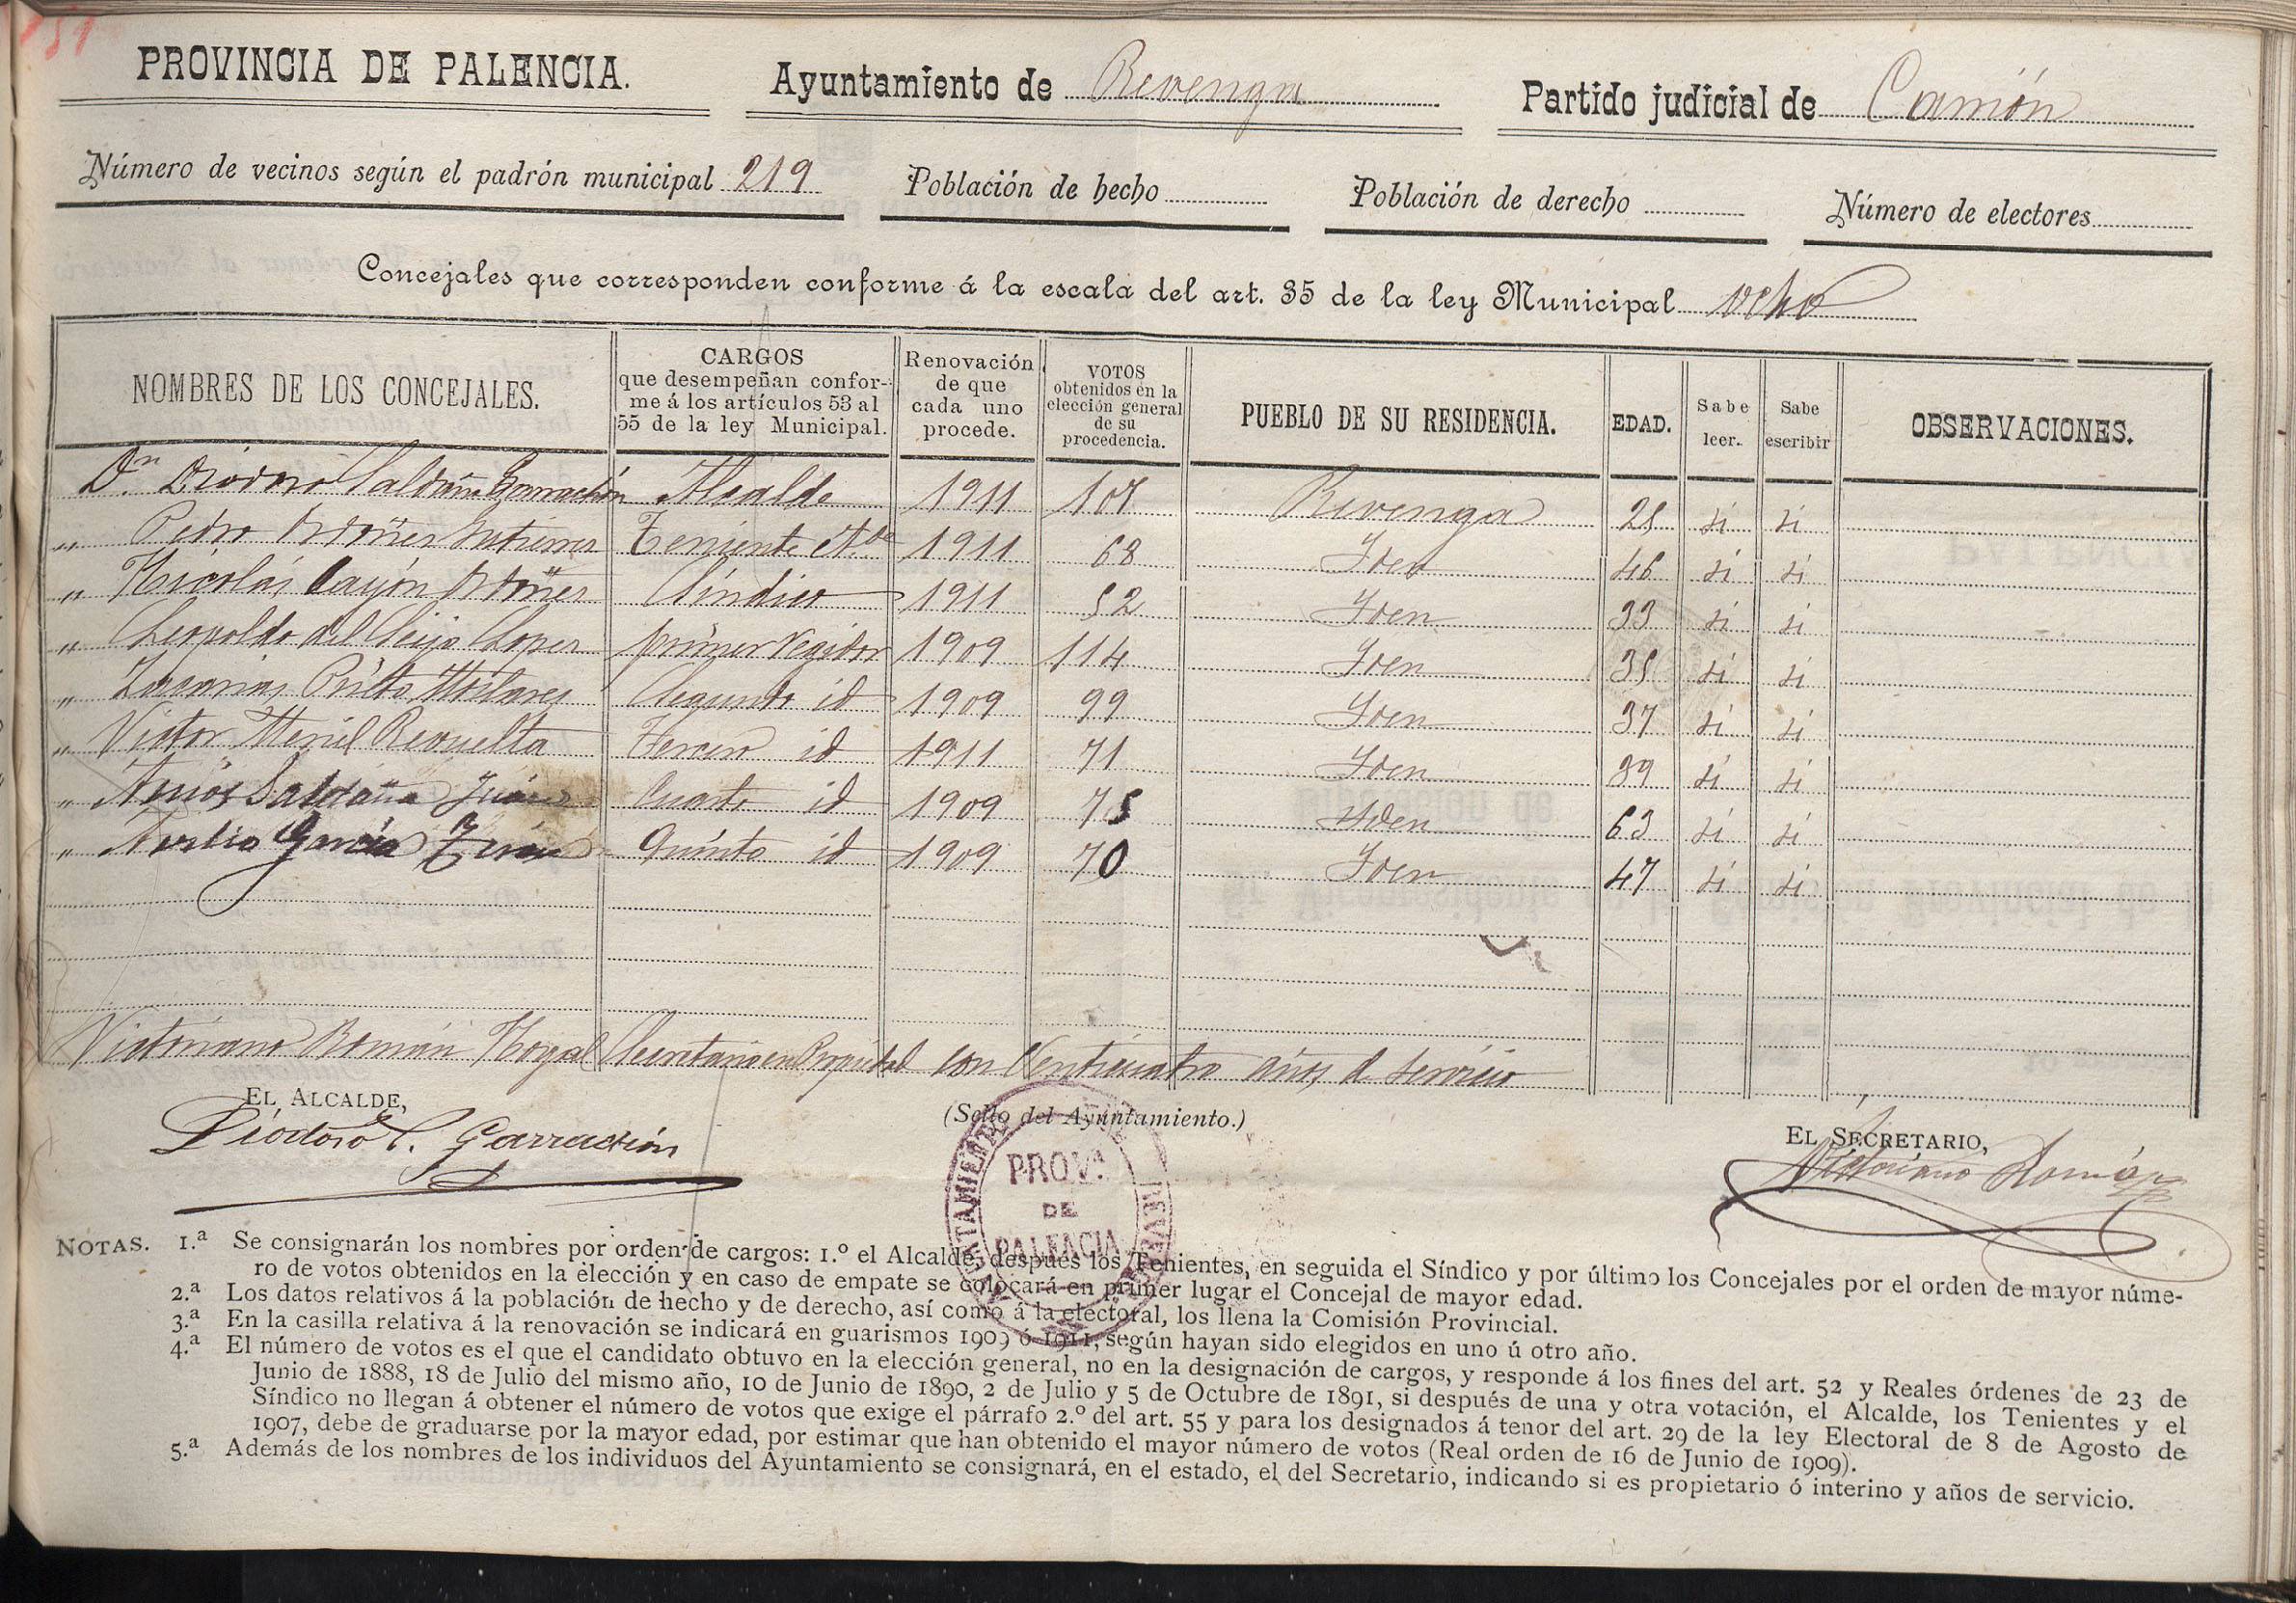 151
PROVINCIA DE PALENCIA.
Ayuntamiento de Revenga
Partido judicial de Carrión
Número de vecinos según el padrón municipal 219
Población de hecho
Población de derecho
Número de electores
Concejales que corresponden conforme á la escala del art. 35 de la ley Municipal ocho
NOMBRES DE LOS CONCEJALES.
CARGOS que desempeñan confor-
me á los artículos 53 al
55 de la ley Municipal.
Renovación de que cada uno procede.
VOTOS obtenidos en la elección general de su procedencia.
PUEBLO DE SU RESIDENCIA.
EDAD.
Sabe leer.
Sabe escribir
OBSERVACIONES.
Dn. Diodoro Saldaña Garrachón Alcalde 1911 107 Revenga 28 si si
" Pedro Ordóñez Gutierrez Teniente Alde 1911 68 Iden 46 si si
" Nicolás Cayón Ordóñez Síndico 1911 52 Iden 33 si si
" Leopoldo del Lopez primer Regidor 1909 114 Iden 35 si si
" Zacarias Segundo id 1909 99 Iden 37 si si
" Victor Revuelta Tercero id 1911 71 Iden 39 si si
" Saldaña Cuarto id 1909 75 Iden 63 si si
" García Quinto id 1909 70 Iden 47 si si
Victoriano Román Secretario en Propiedad con Venticuatro años de servicio
EL ALCALDE,
(Sello del Ayuntamiento.)
EL SECRETARIO,
Diodoro S. Garrachón
Victoriano Román
PROV.ª
DE
PALENCIA
NOTAS. 1.ª Se consignarán los nombres por orden de cargos: 1.º el Alcalde, después los Tenientes, en seguida el Síndico y por último los Concejales por el orden de mayor núme-
ro de votos obtenidos en la elección y en caso de empate se colocará en primer lugar el Concejal de mayor edad.
2.ª Los datos relativos á la población de hecho y de derecho, así como á la electoral, los llena la Comisión Provincial.
3.ª En la casilla relativa á la renovación se indicará en guarismos 1909 ó 1911, según hayan sido elegidos en uno ú otro año.
4.ª El número de votos es el que el candidato obtuvo en la elección general, no en la designación de cargos, y responde á los fines del art. 52 y Reales órdenes de 23 de
Junio de 1888, 18 de Julio del mismo año, 10 de Junio de 1890, 2 de Julio y 5 de Octubre de 1891, si después de una y otra votación, el Alcalde, los Tenientes y el
Síndico no llegan á obtener el número de votos que exige el párrafo 2.º del art. 55 y para los designados á tenor del art. 29 de la ley Electoral de 8 de Agosto de
1907, debe de graduarse por la mayor edad, por estimar que han obtenido el mayor número de votos (Real orden de 16 de Junio de 1909).
5.ª Además de los nombres de los individuos del Ayuntamiento se consignará, en el estado, el del Secretario, indicando si es propietario ó interino y años de servicio.